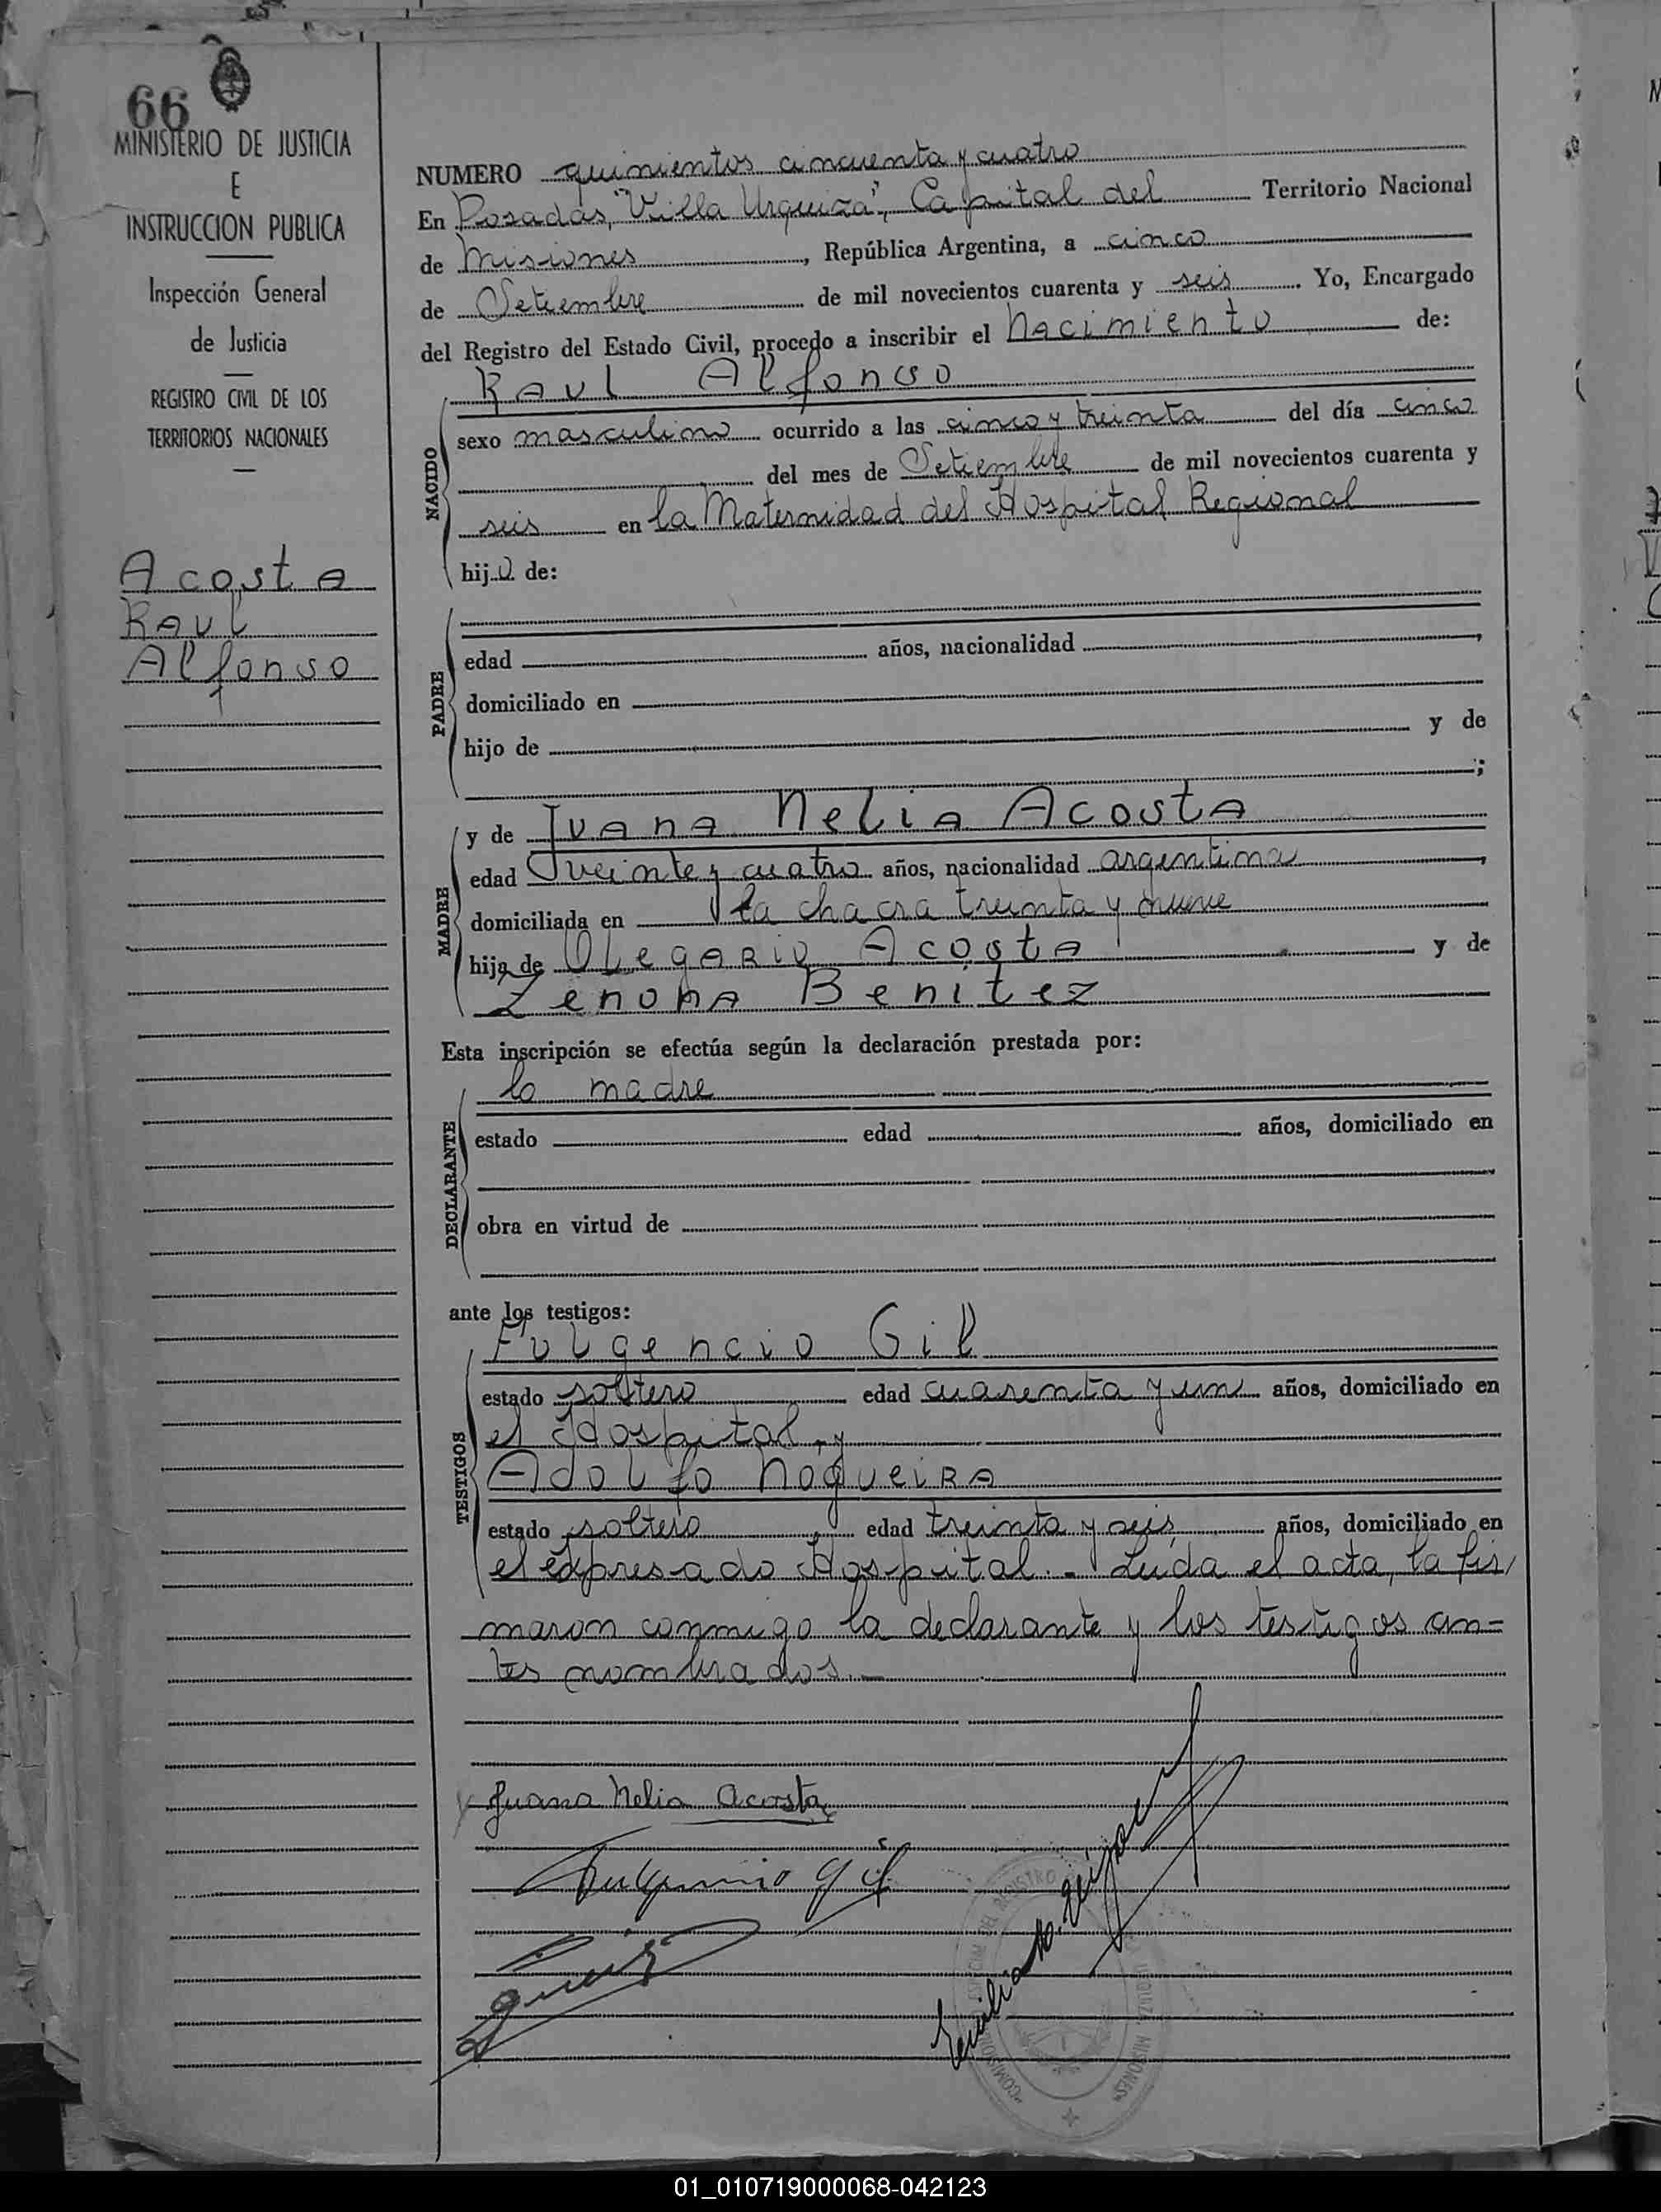 66
MINISTERIO DE JUSTICIA
E
INSTRUCCION PUBLICA
Inspección General
de Justicia
REGISTRO CIVIL DE LOS
TERRITORIOS NACIONALES
Acosta
Raul
Alfonso
NUMERO quinientos cincuenta y cuatro
En Posadas, "Villa Urquiza", Capital del Territorio Nacional
de Misiones, República Argentina, a cinco
de Setiembre de mil novecientos cuarenta y seis. Yo, Encargado
del Registro del Estado Civil, procedo a inscribir el nacimiento de:
Raul Alfonso
NACIDO
sexo masculino ocurrido a las cinco y treinta del día cinco
del mes de Setiembre de mil novecientos cuarenta y
seis en la Maternidad del Hospital Regional
hijo de:
PADRE
edad años, nacionalidad ,
domiciliado en
hijo de y de
;
MADRE
y de Juana Nelia Acosta
edad veinte y cuatro años, nacionalidad argentina,
domiciliada en la chacra treinta y nueve
hija de Olegario Acosta y de
Zenona Benitez
Esta inscripción se efectúa según la declaración prestada por:
DECLARANTE
la madre
estado edad años, domiciliado en
obra en virtud de
ante los testigos:
TESTIGOS
Fulgencio Gil
estado soltero edad cuarenta y un años, domiciliado en
el Hospital, y
Adolfo Nogueira
estado soltero, edad treinta y seis años, domiciliado en
el expresado Hospital.- Leida el acta, la fir/
maron conmigo la declarante y los testigos an=
tes nombrados.-
Juana Nelia Acosta
Fulgencio Gil
DEL REGISTRO
MISIONES
01_010719000068-042123